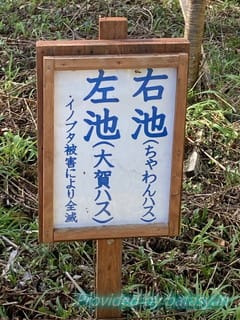 右池(ちゃわんハス)
左池(大賀ハス)
・イノブタ被害により全滅
Provided by batasyan